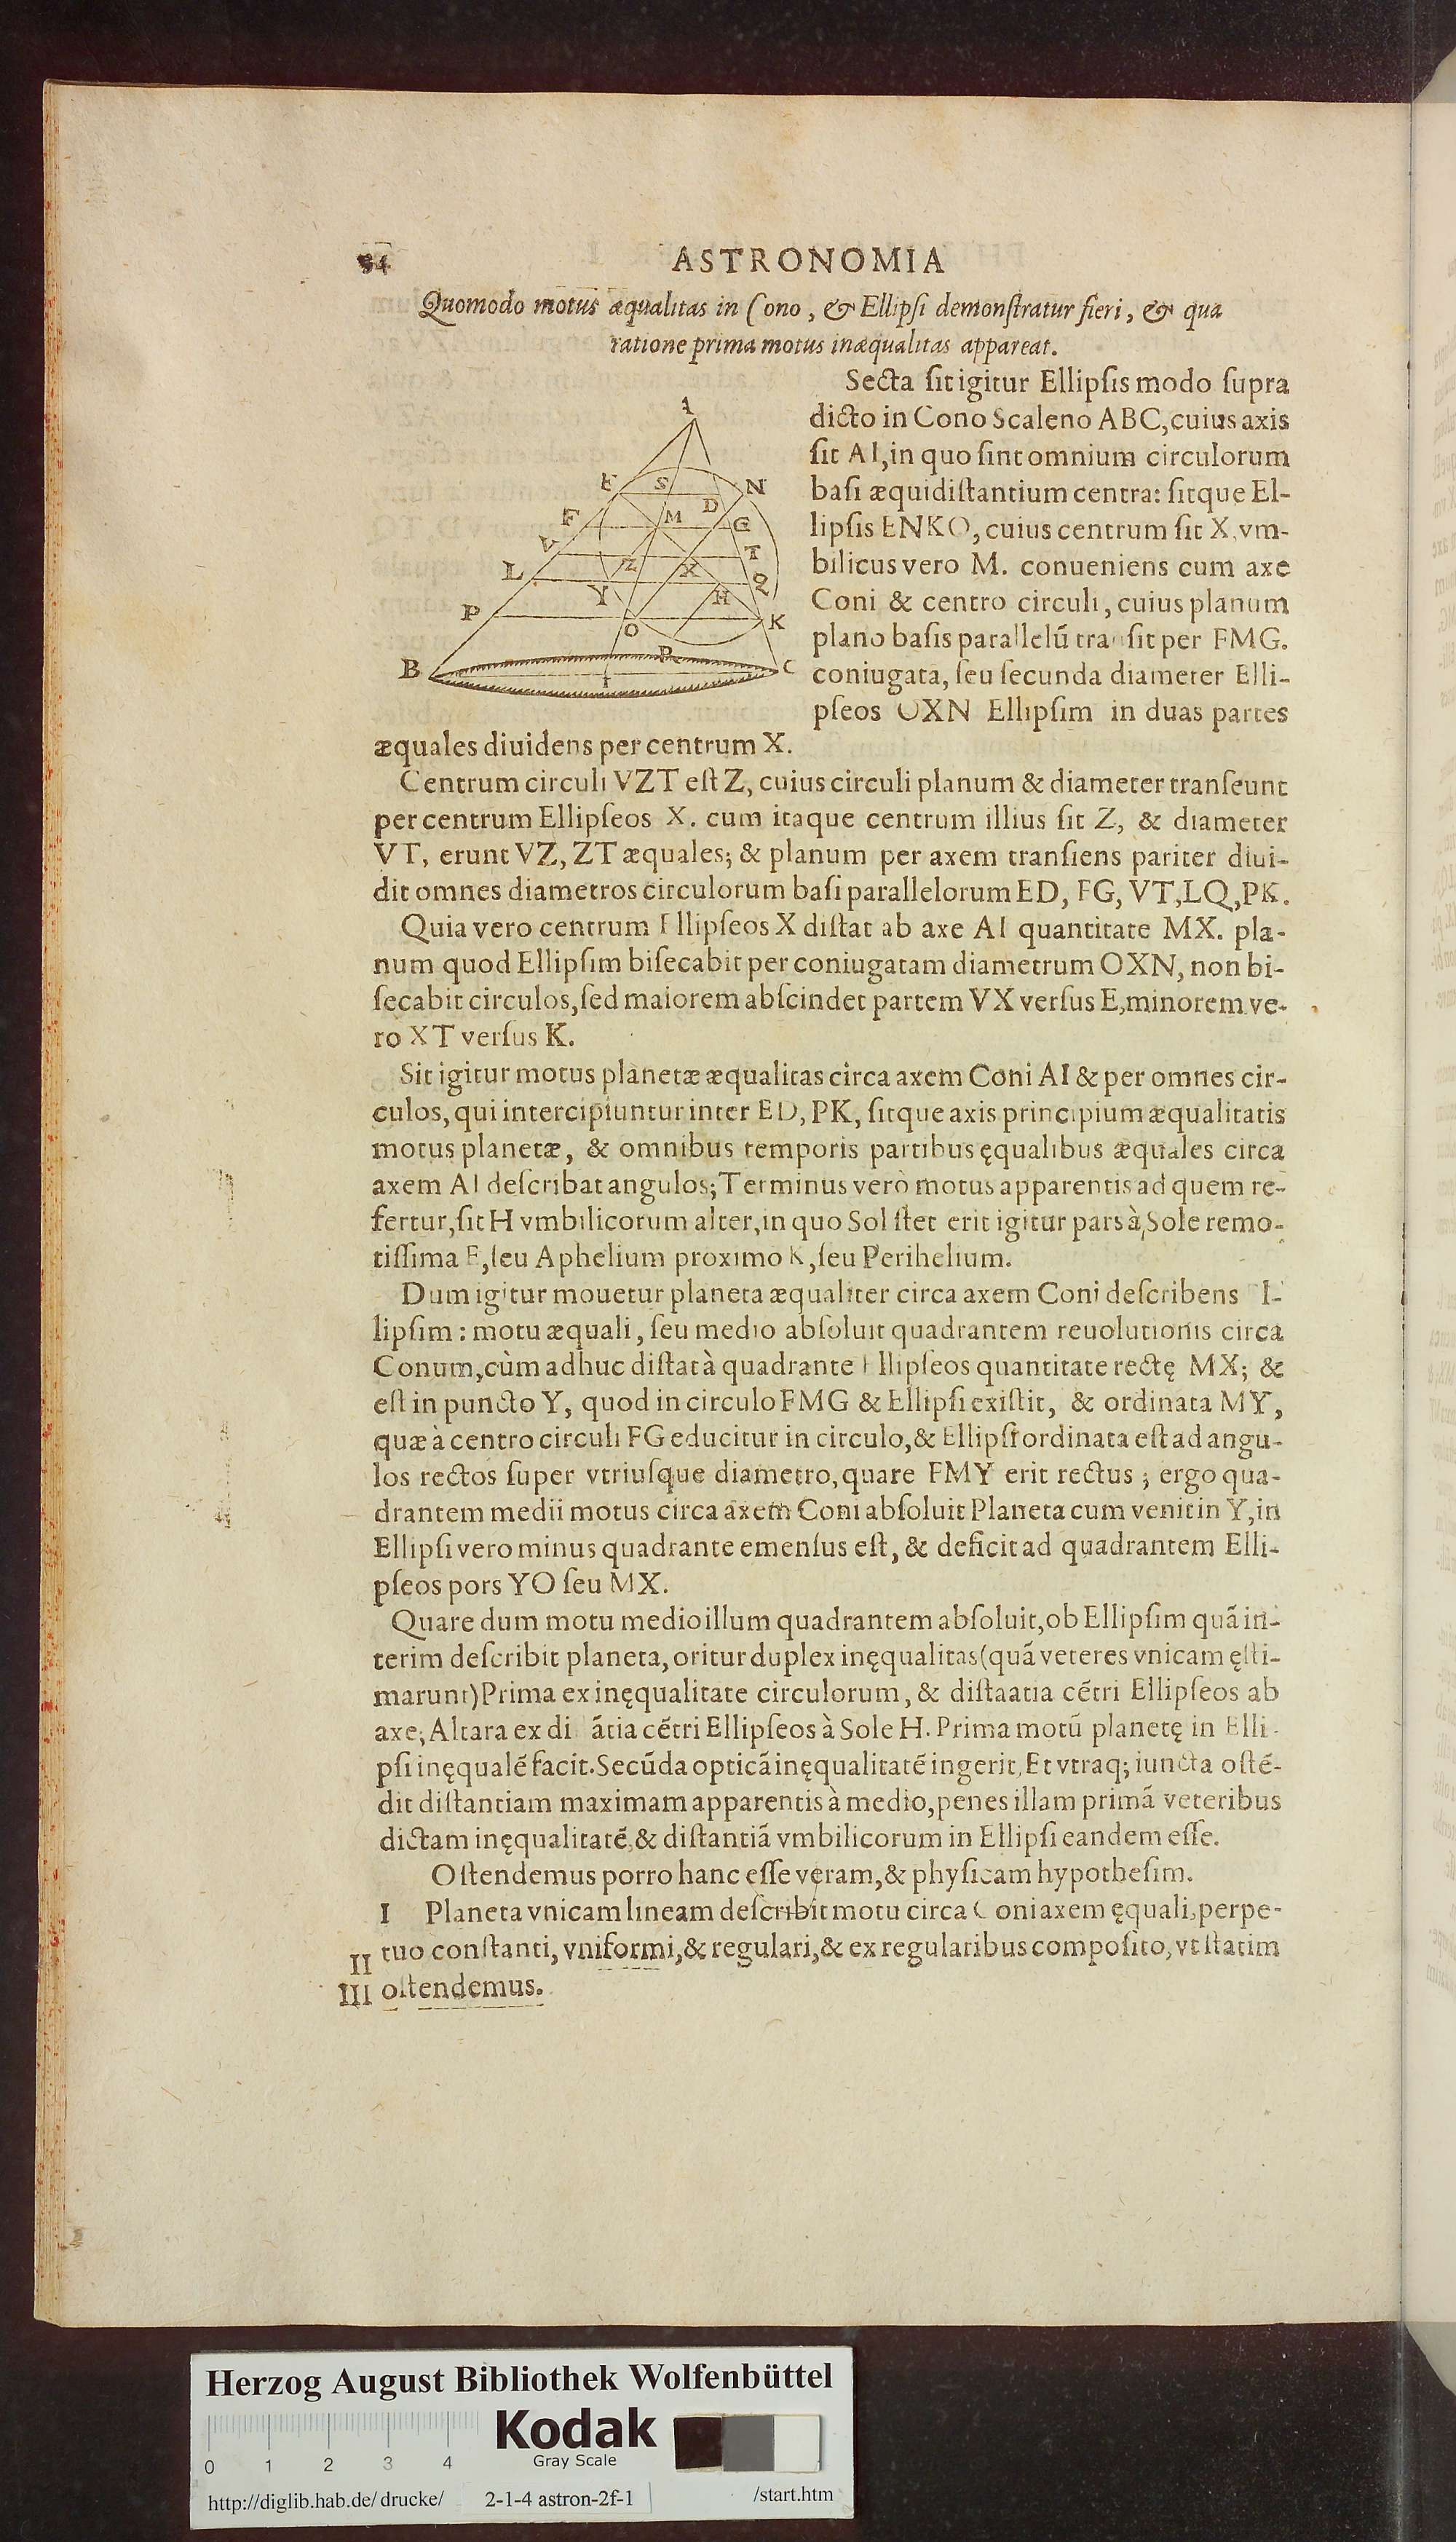 34 ASTRONOMIA
Quomodo motus æqualitas in Cono, & Ellipſi demonſtratur fieri, & qua
ratione prima motus inæqualitas appareat.
Secta ſit igitur Ellipſis modo ſupra
dicto in Cono Scaleno ABC, cuius axis
ſit AI, in quo ſint omnium circulorum
baſi æquidiſtantium centra: ſitque El-
lipſis ENKO, cuius centrum ſit X, vm-
bilicus vero M. conueniens cum axe
Coni & centro circuli, cuius planum
plano baſis parallelū tranſit per FMG.
coniugata, ſeu ſecunda diameter Elli-
pſeos OXN Ellipſim in duas partes
æquales diuidens per centrum X.
A
E S N
D
F M G
V T
L Z X Q
Y H
P O K
R
B I C
Centrum circuli VZT eſt Z, cuius circuli planum & diameter tranſeunt
per centrum Ellipſeos X. cum itaque centrum illius ſit Z, & diameter
VT, erunt VZ, ZT æquales; & planum per axem tranſiens pariter diui-
dit omnes diametros circulorum baſi parallelorum ED, FG, VT, LQ, PK.
Quia vero centrum Ellipſeos X diſtat ab axe AI quantitate MX. pla-
num quod Ellipſim biſecabit per coniugatam diametrum OXN, non bi-
ſecabit circulos, ſed maiorem abſcindet partem VX verſus E, minorem ve-
ro XT verſus K.
Sit igitur motus planetæ æqualitas circa axem Coni AI & per omnes cir-
culos, qui intercipiuntur inter ED, PK, ſitque axis principium æqualitatis
motus planetæ, & omnibus temporis partibus ęqualibus æquales circa
axem AI deſcribat angulos; Terminus verò motus apparentis ad quem re-
fertur, ſit H vmbilicorum alter, in quo Sol ſtet erit igitur pars à Sole remo-
tiſſima E, ſeu Aphelium proximo K, ſeu Perihelium.
Dum igitur mouetur planeta æqualiter circa axem Coni deſcribens El-
lipſim: motu æquali, ſeu medio abſoluit quadrantem reuolutionis circa
Conum, cùm adhuc diſtat à quadrante Ellipſeos quantitate rectę MX; &
eſt in puncto Y, quod in circulo FMG & Ellipſi exiſtit, & ordinata MY,
quæ à centro circuli FG educitur in circulo, & Ellipſi ordinata eſt ad angu-
los rectos ſuper vtriuſque diametro, quare FMY erit rectus; ergo qua-
drantem medii motus circa axem Coni abſoluit Planeta cum venit in Y, in
Ellipſi vero minus quadrante emenſus eſt, & deficit ad quadrantem Elli-
pſeos pors YO ſeu MX.
Quare dum motu medio illum quadrantem abſoluit, ob Ellipſim quā in-
terim deſcribit planeta, oritur duplex inęqualitas (quā veteres vnicam ęſti-
marunt) Prima ex inęqualitate circulorum, & diſtaatia cētri Ellipſeos ab
axe; Altara ex di ātia cētri Ellipſeos à Sole H. Prima motū planetę in Elli-
pſi inęqualē facit. Secūda opticā inęqualitatē ingerit, Et vtraq; iuncta oſtē-
dit diſtantiam maximam apparentis à medio, penes illam primā veteribus
dictam inęqualitatē, & diſtantiā vmbilicorum in Ellipſi eandem eſſe.
Oſtendemus porro hanc eſſe veram, & phyſicam hypotheſim.
I Planeta vnicam lineam deſcribit motu circa Coni axem ęquali, perpe-
II tuo conſtanti, vniformi, & regulari, & ex regularibus compoſito, vt ſtatim
III oſtendemus.
Herzog August Bibliothek Wolfenbüttel
Kodak
Gray Scale
0 1 2 3 4
http://diglib.hab.de/drucke/ 2-1-4 astron-2f-1 /start.htm